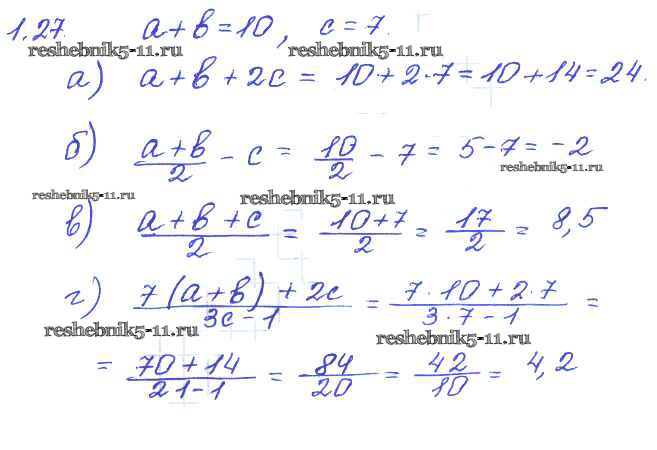 1.27. a + b = 10, c = 7.
reshebnik5-11.ru reshebnik5-11.ru
а) a + b + 2c = 10 + 2·7 = 10 + 14 = 24.
б) (a + b)/2 - c = 10/2 - 7 = 5 - 7 = -2
reshebnik5-11.ru
reshebnik5-11.ru reshebnik5-11.ru
в) (a + b + c)/2 = (10 + 7)/2 = 17/2 = 8,5
г) (7(a + b) + 2c)/(3c - 1) = (7·10 + 2·7)/(3·7 - 1) =
reshebnik5-11.ru reshebnik5-11.ru
= (70 + 14)/(21 - 1) = 84/20 = 42/10 = 4,2